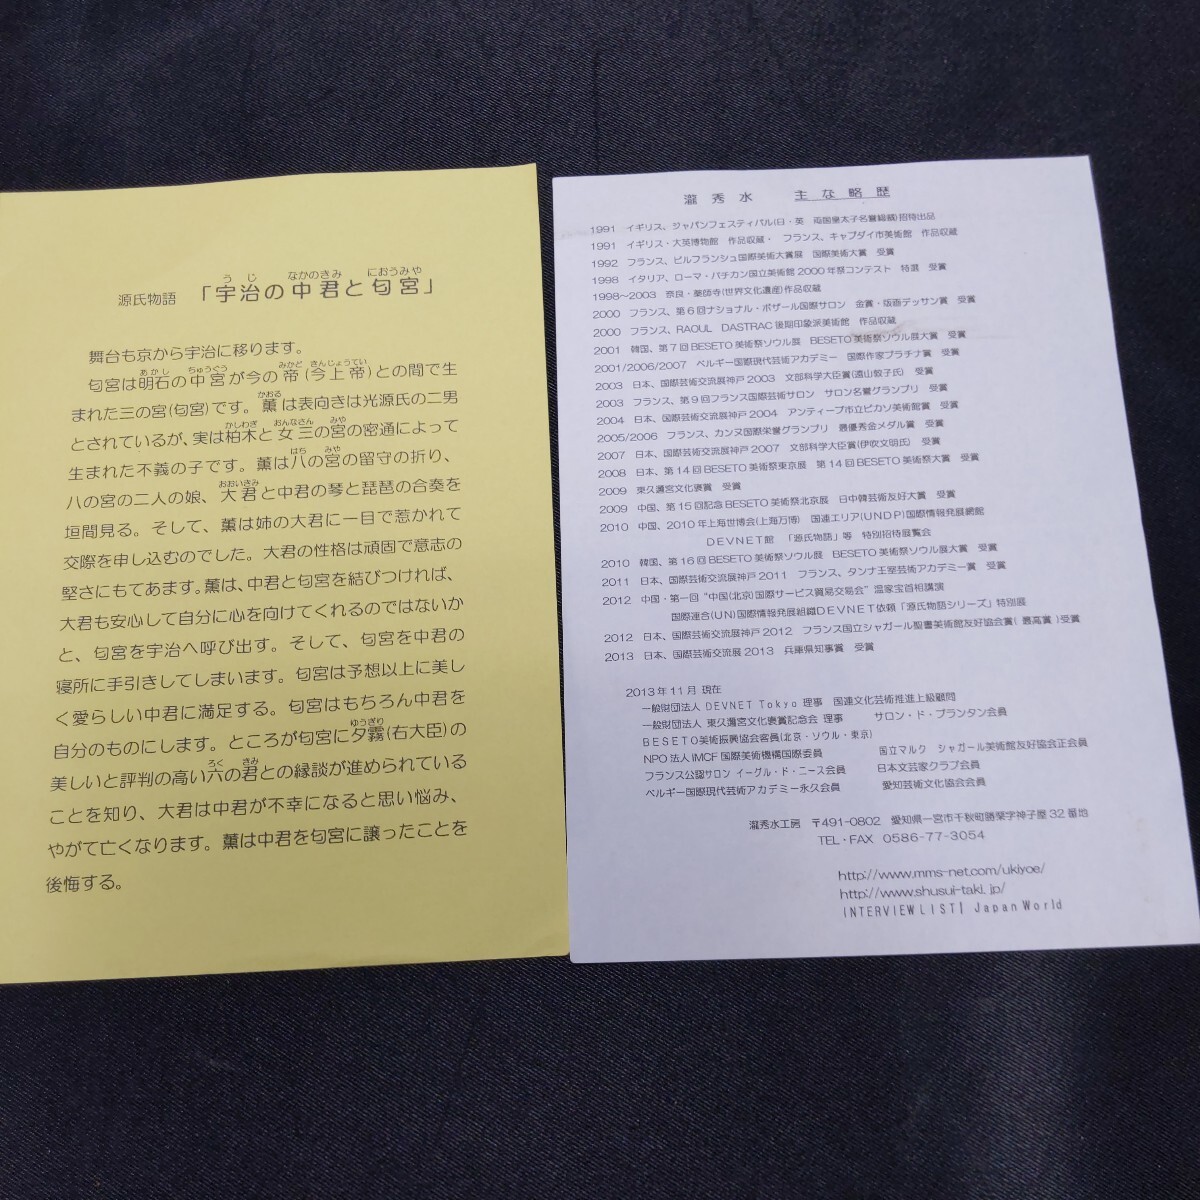 うじ なかのきみ におうみや
源氏物語 「宇治の中君と匂宮」
舞台も京から宇治に移ります。
あかし ちゅうぐう みかど きんじょうてい
匂宮は明石の中宮が今の帝(今上帝)との間で生
かおる
まれた三の宮(匂宮)です。薫は表向きは光源氏の二男
かしわぎ おんなさん みや
とされているが、実は柏木と女三の宮の密通によって
はち みや
生まれた不義の子です。薫は八の宮の留守の折り、
おおいきみ
八の宮の二人の娘、大君と中君の琴と琵琶の合奏を
垣間見る。そして、薫は姉の大君に一目で惹かれて
交際を申し込むのでした。大君の性格は頑固で意志の
堅さにもてあます。薫は、中君と匂宮を結びつければ、
大君も安心して自分に心を向けてくれるのではないか
と、匂宮を宇治へ呼び出す。そして、匂宮を中君の
寝所に手引きしてしまいます。匂宮は予想以上に美し
く愛らしい中君に満足する。匂宮はもちろん中君を
ゆうぎり
自分のものにします。ところが匂宮に夕霧(右大臣)の
ろく きみ
美しいと評判の高い六の君との縁談が進められている
ことを知り、大君は中君が不幸になると思い悩み、
やがて亡くなります。薫は中君を匂宮に譲ったことを
後悔する。
瀧秀水 主な略歴
1991 イギリス、ジャパンフェスティバル(日・英 両国皇太子名誉総裁)招待出品
1991 イギリス・大英博物館 作品収蔵・ フランス、キャブダイ市美術館 作品収蔵
1992 フランス、ビルフランシュ国際美術大賞展 国際美術大賞 受賞
1998 イタリア、ローマ・バチカン国立美術館2000年祭コンテスト 特選 受賞
1998～2003 奈良・薬師寺(世界文化遺産)作品収蔵
2000 フランス、第6回ナショナル・ボザール国際サロン 金賞・版画デッサン賞 受賞
2000 フランス、RAOUL DASTRAC後期印象派美術館 作品収蔵
2001 韓国、第7回BESETO美術祭ソウル展 BESETO美術祭ソウル展大賞 受賞
2001/2006/2007 ベルギー国際現代芸術アカデミー 国際作家プラチナ賞 受賞
2003 日本、国際芸術交流展神戸2003 文部科学大臣賞(遠山敦子氏) 受賞
2003 フランス、第9回フランス国際芸術サロン サロン名誉グランプリ 受賞
2004 日本、国際芸術交流展神戸2004 アンティーブ市立ピカソ美術館賞 受賞
2005/2006 フランス、カンヌ国際栄誉グランプリ 最優秀金メダル賞 受賞
2007 日本、国際芸術交流展神戸2007 文部科学大臣賞(伊吹文明氏) 受賞
2008 日本、第14回BESETO美術祭東京展 第14回BESETO美術祭大賞 受賞
2009 東久邇宮文化褒賞 受賞
2009 中国、第15回記念BESETO美術祭北京展 日中韓芸術友好大賞 受賞
2010 中国、2010年上海世博会(上海万博) 国連エリア(UNDP)国際情報発展網館
DEVNET館 「源氏物語」等 特別招待展覧会
2010 韓国、第16回BESETO美術祭ソウル展 BESETO美術祭ソウル展大賞 受賞
2011 日本、国際芸術交流展神戸2011 フランス、タンナ王室芸術アカデミー賞 受賞
2012 中国・第一回“中国(北京)国際サービス貿易交易会”温家宝首相講演
国際連合(UN)国際情報発展組織DEVNET依頼「源氏物語シリーズ」特別展
2012 日本、国際芸術交流展神戸2012 フランス国立シャガール聖書美術館友好協会賞(最高賞)受賞
2013 日本、国際芸術交流展2013 兵庫県知事賞 受賞
2013年11月 現在
一般財団法人 DEVNET Tokyo 理事 国連文化芸術推進上級顧問
一般財団法人 東久邇宮文化褒賞記念会 理事 サロン・ド・プランタン会員
BESETO美術振興協会客員(北京・ソウル・東京)
NPO法人IMCF国際美術機構国際委員 国立マルク シャガール美術館友好協会正会員
フランス公認サロン イーグル・ド・ニース会員 日本文芸家クラブ会員
ベルギー国際現代芸術アカデミー永久会員 愛知芸術文化協会会員
瀧秀水工房 〒491-0802 愛知県一宮市千秋町勝栗字神子屋32番地
TEL・FAX 0586-77-3054
http://www.mms-net.com/ukiyoe/
http://www.shusui-taki.jp/
[INTERVIEW LIST] Japan World